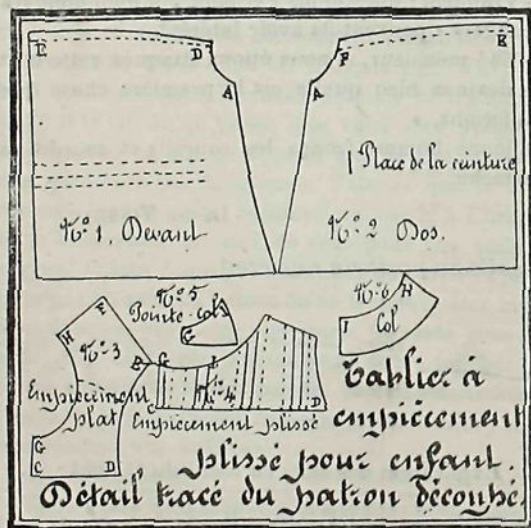 E
D
F
K
A
A
Place de la ceinture
N° 1, Devant
N° 2 Dos.
N° 5
Pointe-col
G
N° 6
H
I
Col
N° 3
H
Empiècement
plat
G
C
D
G
I
N° 4
C
D
Empiècement plissé
Tablier à
empiècement
plissé pour enfant.
Détail tracé du patron découpé